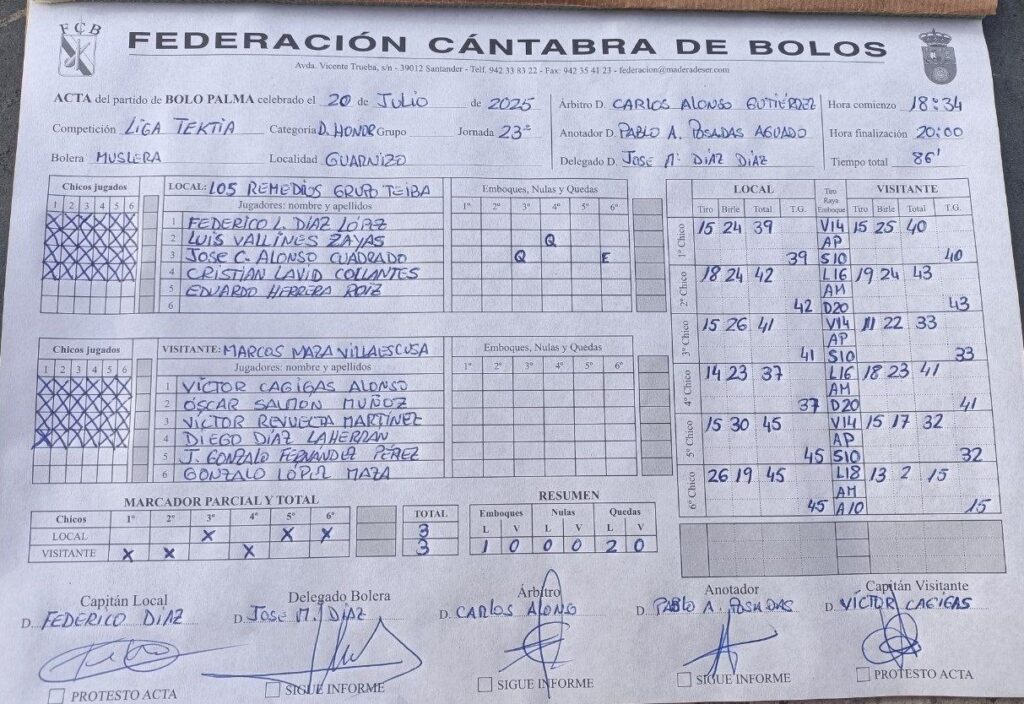 FCB
FEDERACIÓN CÁNTABRA DE BOLOS
Avda. Vicente Trueba, s/n - 39012 Santander - Telf. 942 33 83 22 - Fax: 942 35 41 23 - federacion@maderadeser.com
ACTA del partido de BOLO PALMA celebrado el 20 de JULIO de 2025
Competición LIGA TEKTIA Categoría D. HONOR Grupo Jornada 23ª
Bolera MUSLERA Localidad GUARNIZO
Árbitro D. CARLOS ALONSO GUTIÉRREZ
Anotador D. PABLO A. POSADAS AGUADO
Delegado D. JOSE Mª DIAZ DIAZ
Hora comienzo 18:34
Hora finalización 20:00
Tiempo total 86'
Chicos jugados
1 2 3 4 5 6
LOCAL: LOS REMEDIOS GRUPO TEIBA
Jugadores: nombre y apellidos
Emboques, Nulas y Quedas
1ª 2ª 3ª 4ª 5ª 6ª
1 FEDERICO L. DÍAZ LÓPZ
2 LUIS VALLINES ZAYAS Q
3 JOSE C. ALONSO CUADRADO Q E
4 CRISTIAN LAVID COLLANTES
5 EDUARDO HERRERA ROIZ
6
Chicos jugados
1 2 3 4 5 6
VISITANTE: MARCOS MAZA VILLAESCUSA
Jugadores: nombre y apellidos
Emboques, Nulas y Quedas
1ª 2ª 3º 4º 5º 6º
1 VÍCTOR CAGIGAS ALONSO
2 ÓSCAR SALMÓN MUÑOZ
3 VÍCTOR REVUELTA MARTÍNEZ
4 DIEGO DÍAZ LAHERRAN
5 J. GONZALO FERNÁNDEZ PÉREZ
6 GONZALO LÓPEZ MAZA
LOCAL Tiro Raya Emboque VISITANTE
Tiro Birle Total T.G. Tiro Birle Total T.G.
1º Chico 15 24 39 V14 15 25 40
AP
39 S10 40
2º Chico 18 24 42 L16 19 24 43
AM
42 D20 43
3º Chico 15 26 41 V14 11 22 33
AP
41 S10 33
4º Chico 14 23 37 L16 18 23 41
AM
37 D20 41
5º Chico 15 30 45 V14 15 17 32
AP
45 S10 32
6º Chico 26 19 45 L18 13 2 15
AM
45 A10 15
MARCADOR PARCIAL Y TOTAL
Chicos 1º 2º 3º 4º 5º 6º TOTAL
LOCAL X X X 3
VISITANTE X X X 3
RESUMEN
Emboques Nulas Quedas
L V L V L V
1 0 0 0 2 0
Capitán Local
D. FEDERICO DIAZ
PROTESTO ACTA
Delegado Bolera
D. JOSE M. DIAZ
SIGUE INFORME
Árbitro
D. CARLOS ALONSO
SIGUE INFORME
Anotador
D. PABLO A. POSADAS
SIGUE INFORME
Capitán Visitante
D. VÍCTOR CAGIGAS
PROTESTO ACTA